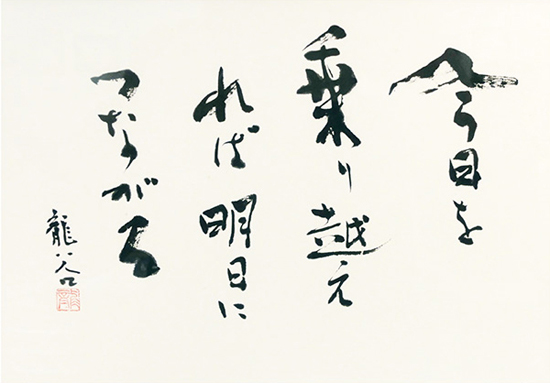 今日を
乗り越え
れば明日に
つながる
龍谷